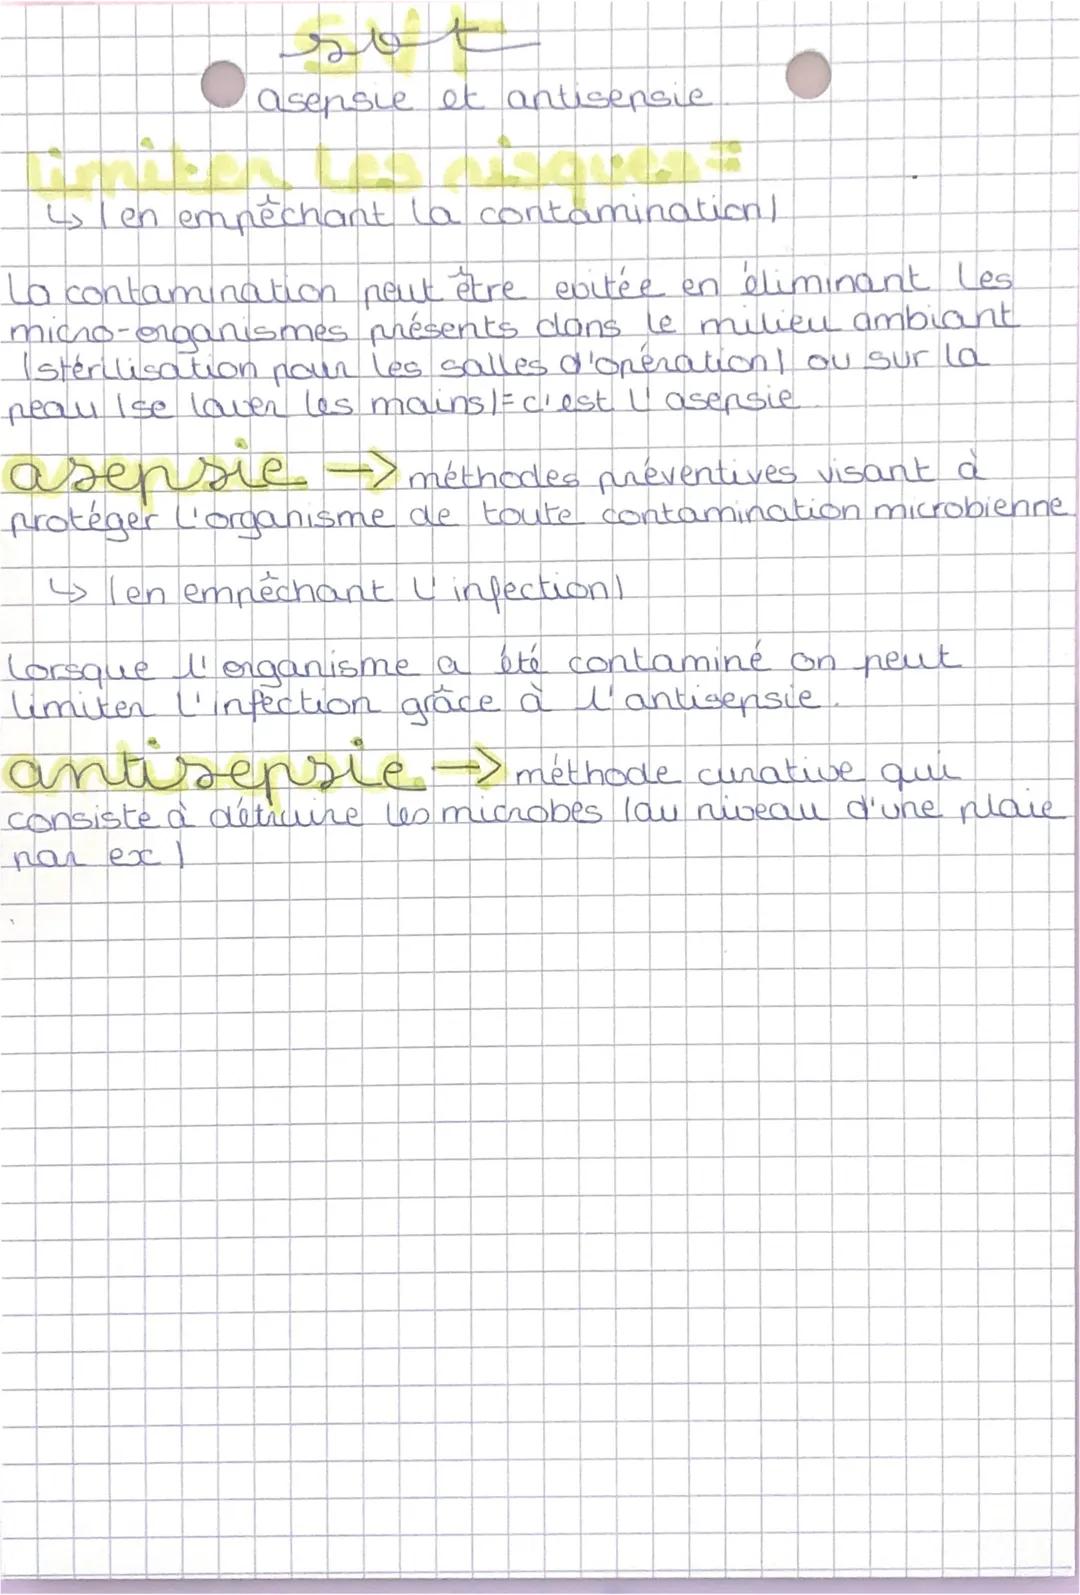 svt
asepsie et antisepsie
limiter les risques =
↳ (en empêchant la contamination)
la contamination peut être évitée en éliminant les
micro-organismes présents dans le milieu ambiant
(stérilisation pour les salles d'opération) ou sur la
peau (se laver les mains) = c'est l'asepsie
asepsie -> méthodes préventives visant à
protéger l'organisme de toute contamination microbienne
↳ (en empêchant l'infection)
lorsque l'organisme a été contaminé on peut
limiter l'infection grâce à l'antisepsie.
antisepsie -> méthode curative qui
consiste à détruire les microbes (au niveau d'une plaie
par ex)